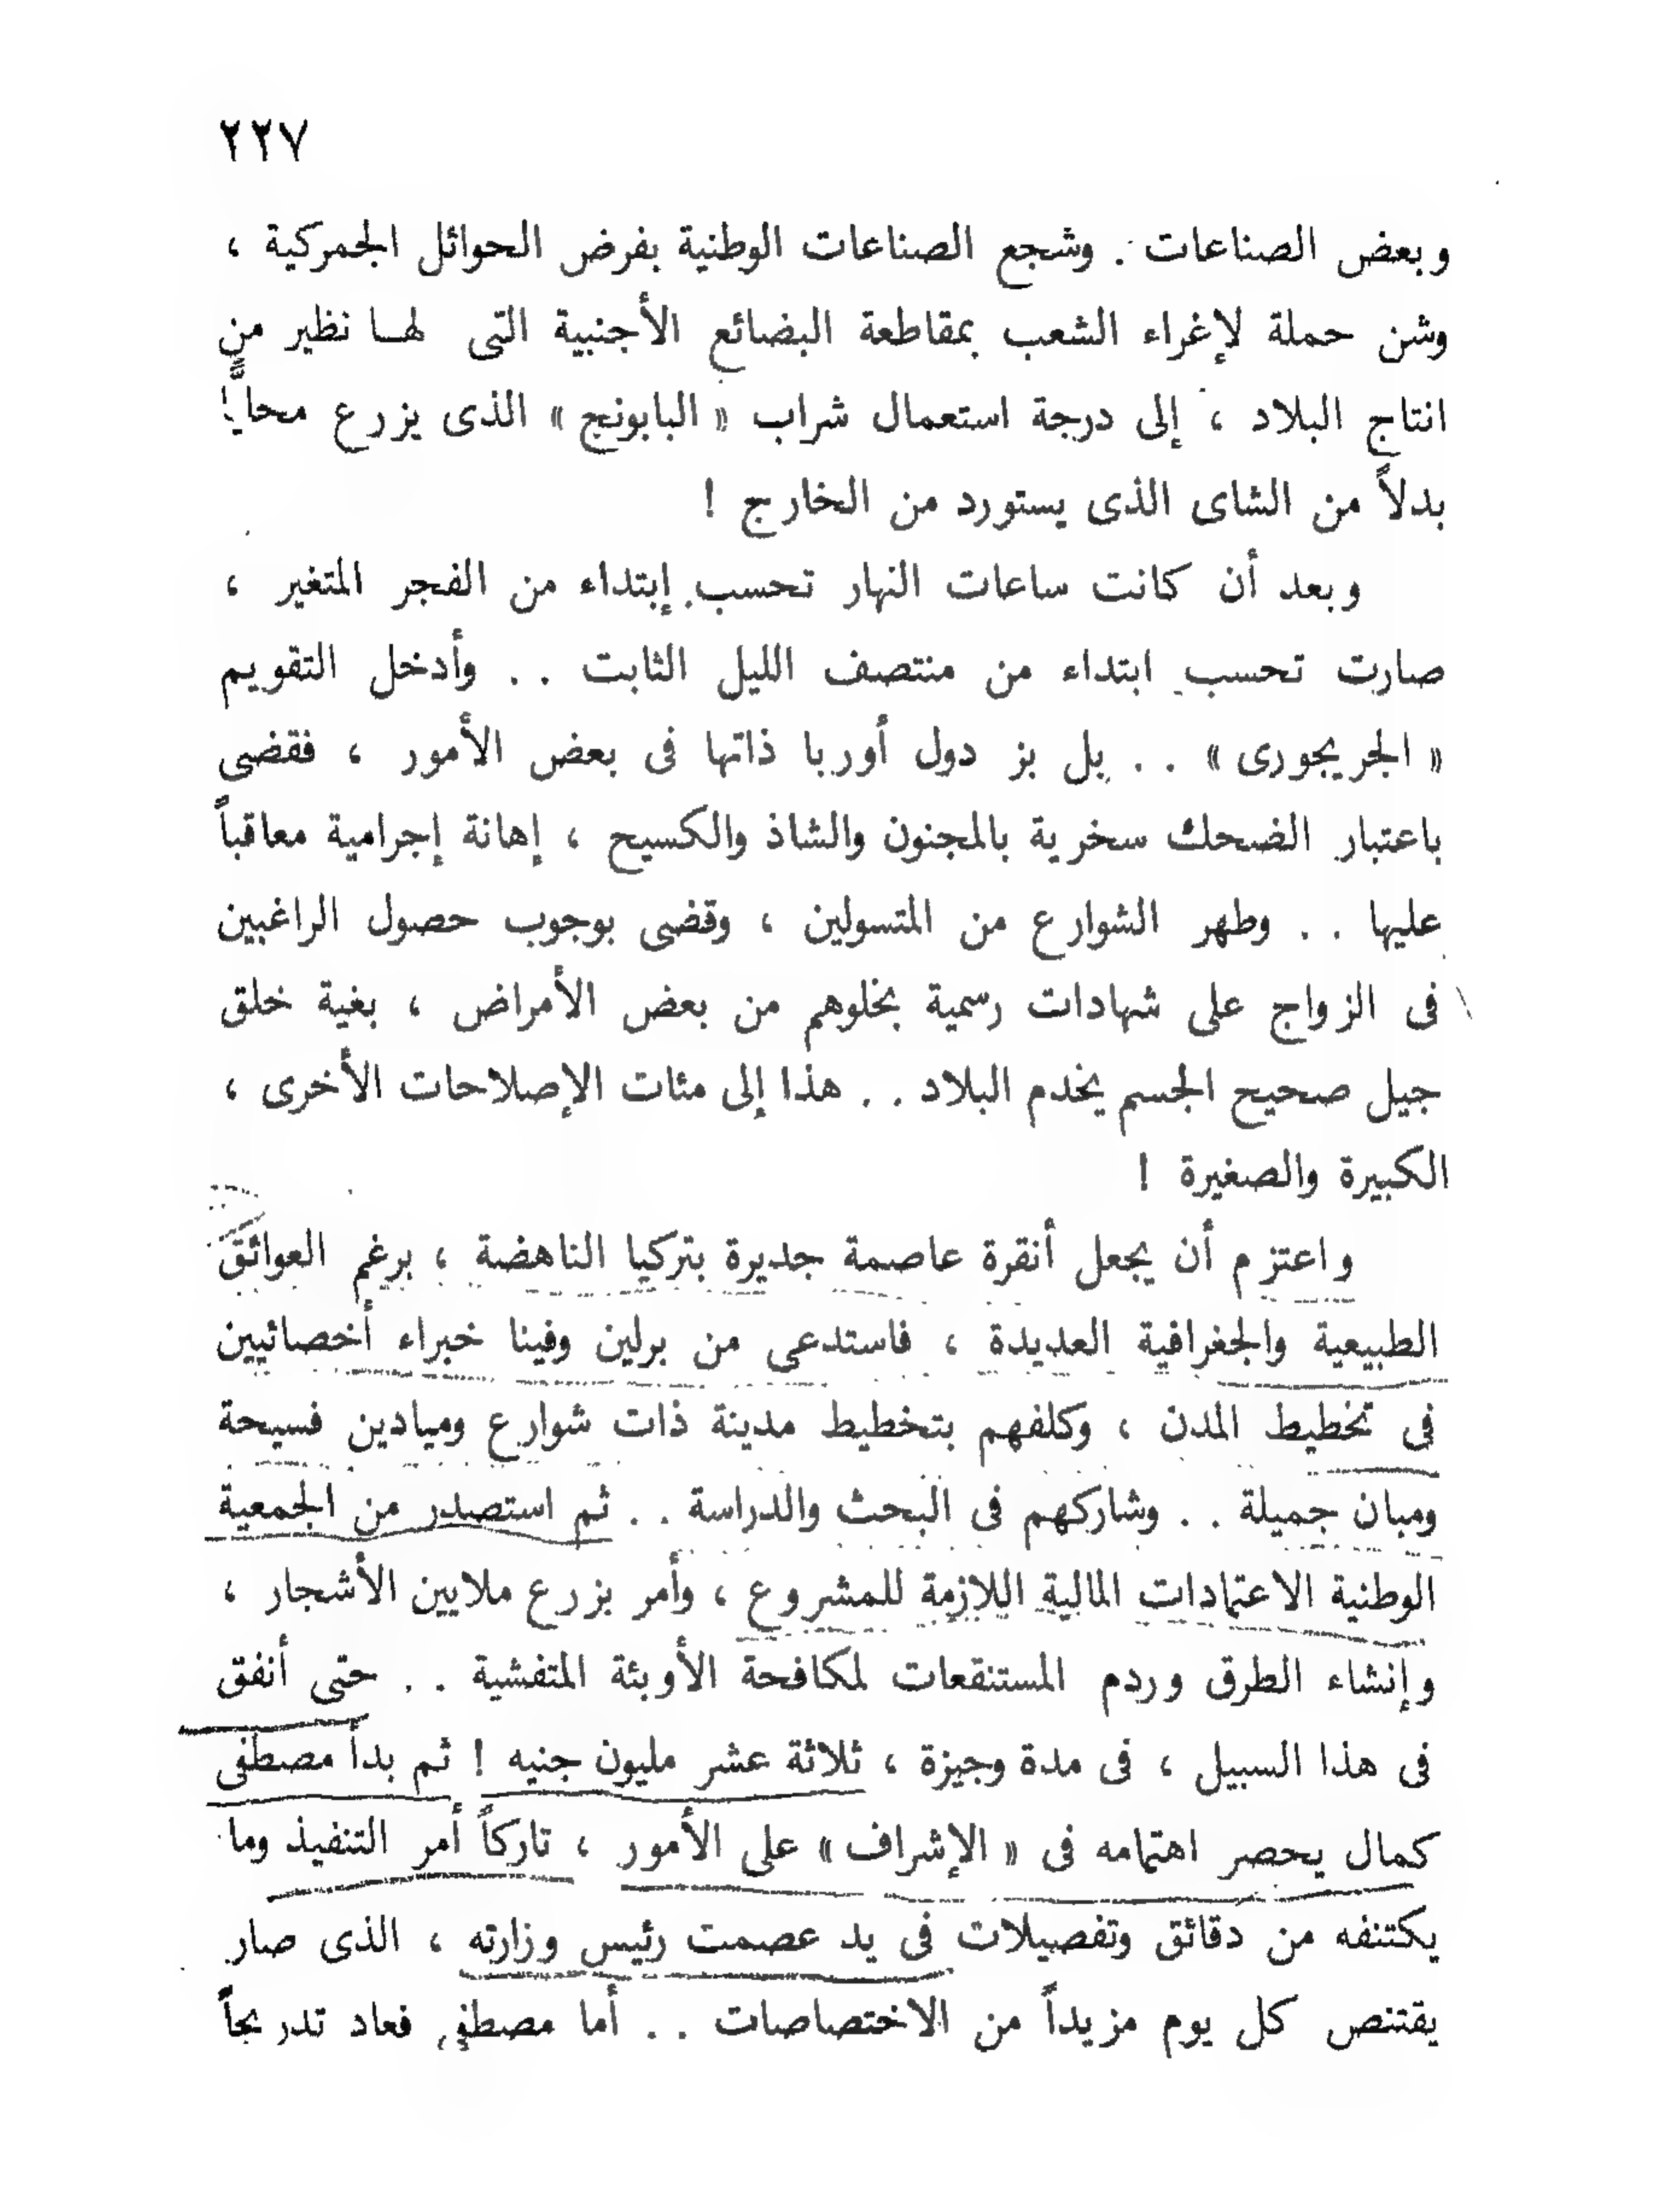 ٢٢٧
وبعض الصناعات . وشجع الصناعات الوطنية بفرض الحوائل الجمركية ،
وشن حملة لإغراء الشعب بمقاطعة البضائع الأجنبية التى لهـا نظير من
انتاج البلاد ، إلى درجة استعمال شراب « البابونج » الذى يزرع محليًّا
بدلاً من الشاى الذى يستورد من الخارج !
وبعد أن كانت ساعات النهار تحسب إبتداء من الفجر المتغير ،
صارت تحسب ابتداء من منتصف الليل الثابت . . وأدخل التقويم
« الجريجورى » . . بل بز دول أوربا ذاتها فى بعض الأمور ، فقضى
باعتبار الضحك سخرية بالمجنون والشاذ والكسيح ، إهانة إجرامية معاقباً
عليها . . وطهر الشوارع من المتسولين ، وقضى بوجوب حصول الراغبين
فى الزواج على شهادات رسمية بخلوهم من بعض الأمراض ، بغية خلق
جيل صحيح الجسم يخدم البلاد . . هذا إلى مئات الإصلاحات الأخرى ،
الكبيرة والصغيرة !
واعتزم أن يجعل أنقرة عاصمة جديرة بتركيا الناهضة ، برغم العوائق
الطبيعية والجغرافية العديدة ، فاستدعى من برلين وفينا خبراء أخصائيين
فى تخطيط المدن ، وكلفهم بتخطيط مدينة ذات شوارع وميادين فسيحة
ومبان جميلة . . وشاركهم فى البحث والدراسة . . ثم استصدر من الجمعية
الوطنية الاعتمادات المالية اللازمة للمشروع ، وأمر بزرع ملايين الأشجار ،
وإنشاء الطرق وردم المستنقعات لمكافحة الأوبئة المتفشية . . حتى أنفق
فى هذا السبيل ، فى مدة وجيزة ، ثلاثة عشر مليون جنيه ! ثم بدأ مصطفى
كمال يحصر اهتمامه فى « الإشراف » على الأمور ، تاركاً أمر التنفيذ وما
يكتنفه من دقائق وتفصيلات فى يد عصمت رئيس وزارته ، الذى صار
يقتنص كل يوم مزيداً من الاختصاصات . . أما مصطفى فعاد تدريجاً